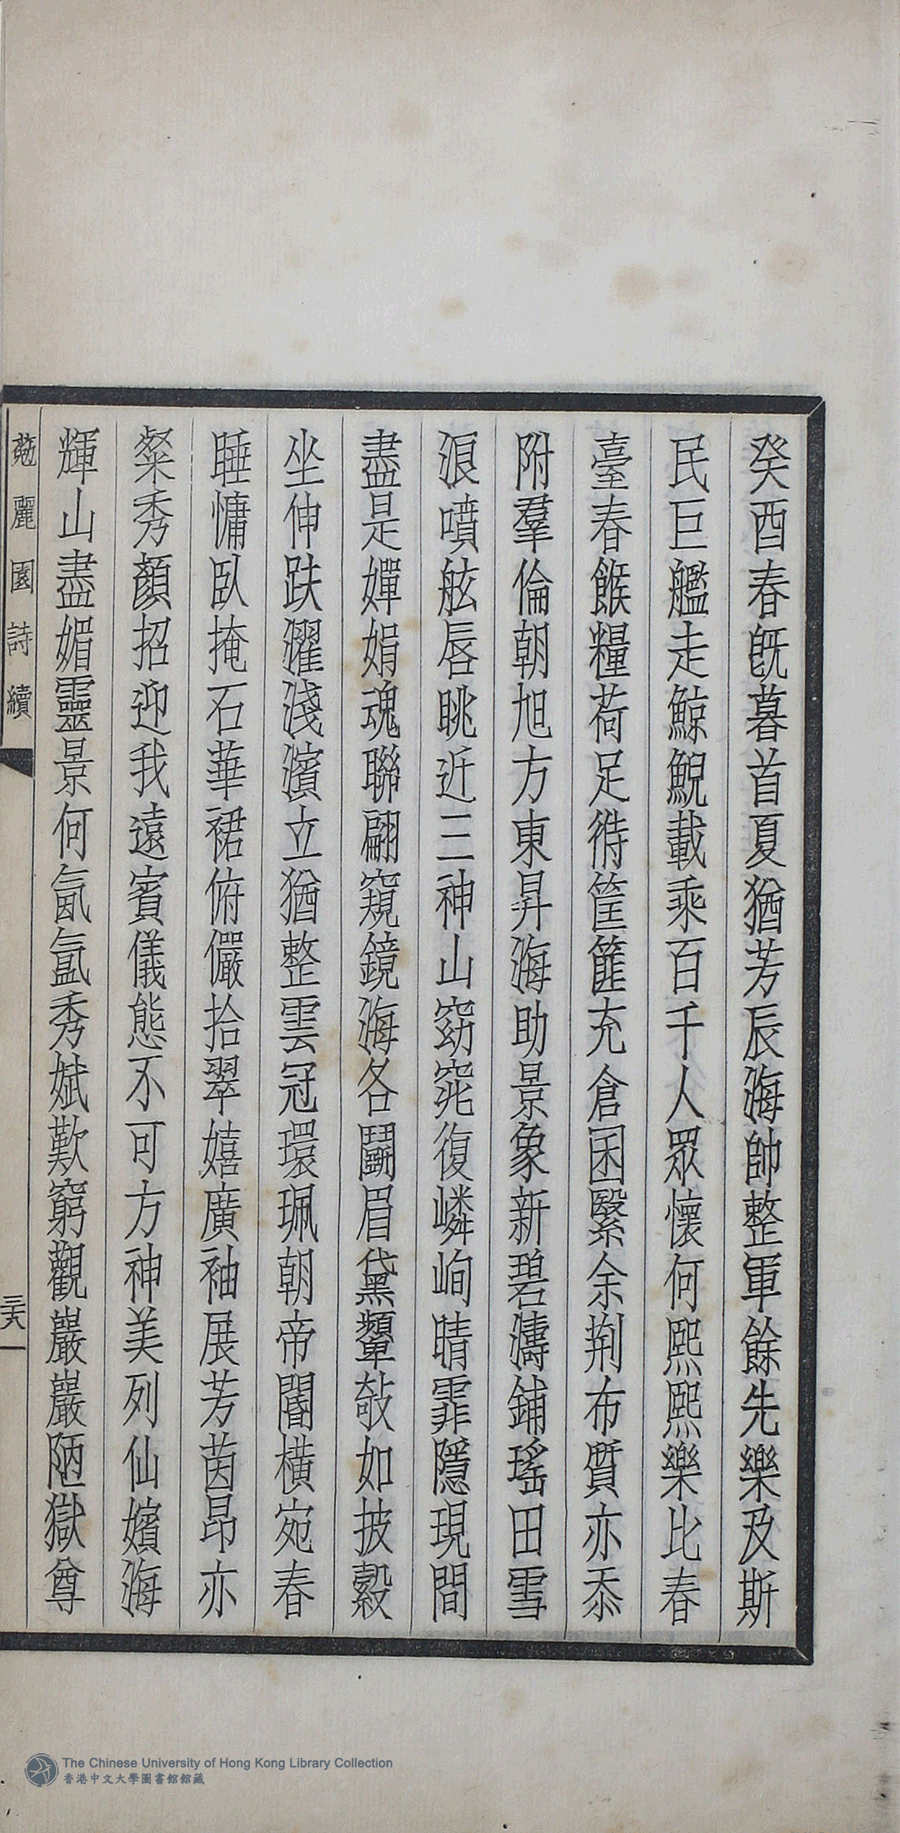 癸酉春旣暮首夏猶芳辰海帥整軍餘先樂及斯
民巨艦走鯨鯢載乘百千人眾懷何熙熙樂比春
臺春餱糧荷足待筐篚充倉囷繄余荆布質亦忝
附羣倫朝旭方東昇海助景象新碧濤鋪瑤田雪
浪噴舷唇眺近三神山窈窕復嶙峋晴霏隱現間
盡是嬋娟魂聯翩窺鏡海各鬪眉黛顰攲如披縠
坐伸趺濯淺濱立猶整雲冠環珮朝帝閽橫宛春
睡慵臥掩石華裙俯儼拾翠嬉廣袖展芳茵昂亦
粲秀顏招迎我遠賓儀態不可方神美列仙嬪海
輝山盡媚靈景何氤氳秀娬歎窮觀巖巖陋獄尊
勉麗園詩續
三六
The Chinese University of Hong Kong Library Collection
香港中文大學圖書館館藏